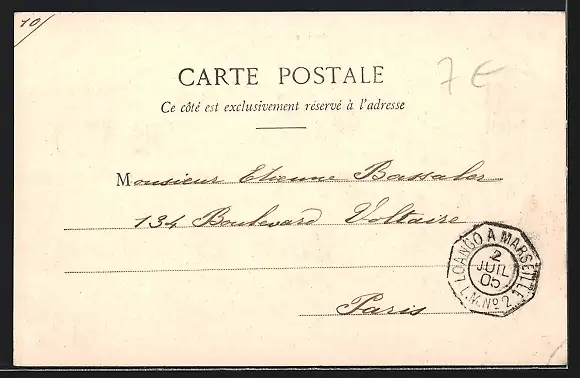 10/
7 €
CARTE POSTALE
Ce côté est exclusivement réservé à l'adresse
Monsieur Etienne Bassaler
134 Boulevard Voltaire
Paris
LOANGO A MARSEILLE
2
JUIL
05
L.M. Nº 2